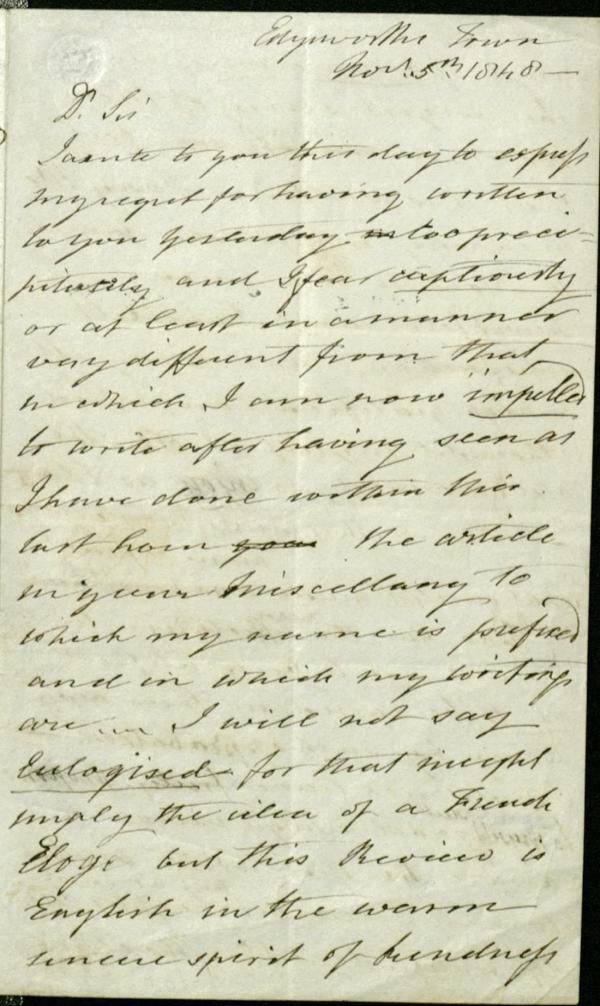 Edgeworths Town
Novr. 5th 1848 —
Dr. Sir
I write to you this day to express
my regret for having written
to you yesterday too preci=
pitately and I fear captiously
or at least in a manner
very different from that
in which I am now impelled
to write after having seen as
I have done within this
last hour you the article
in your Miscellany to
which my name is prefixed
and in which my writings
are ... I will not say
Eulogised for that might
imply the idea of a French
Eloge but this Review is
English in the warm
sincere spirit of kindness